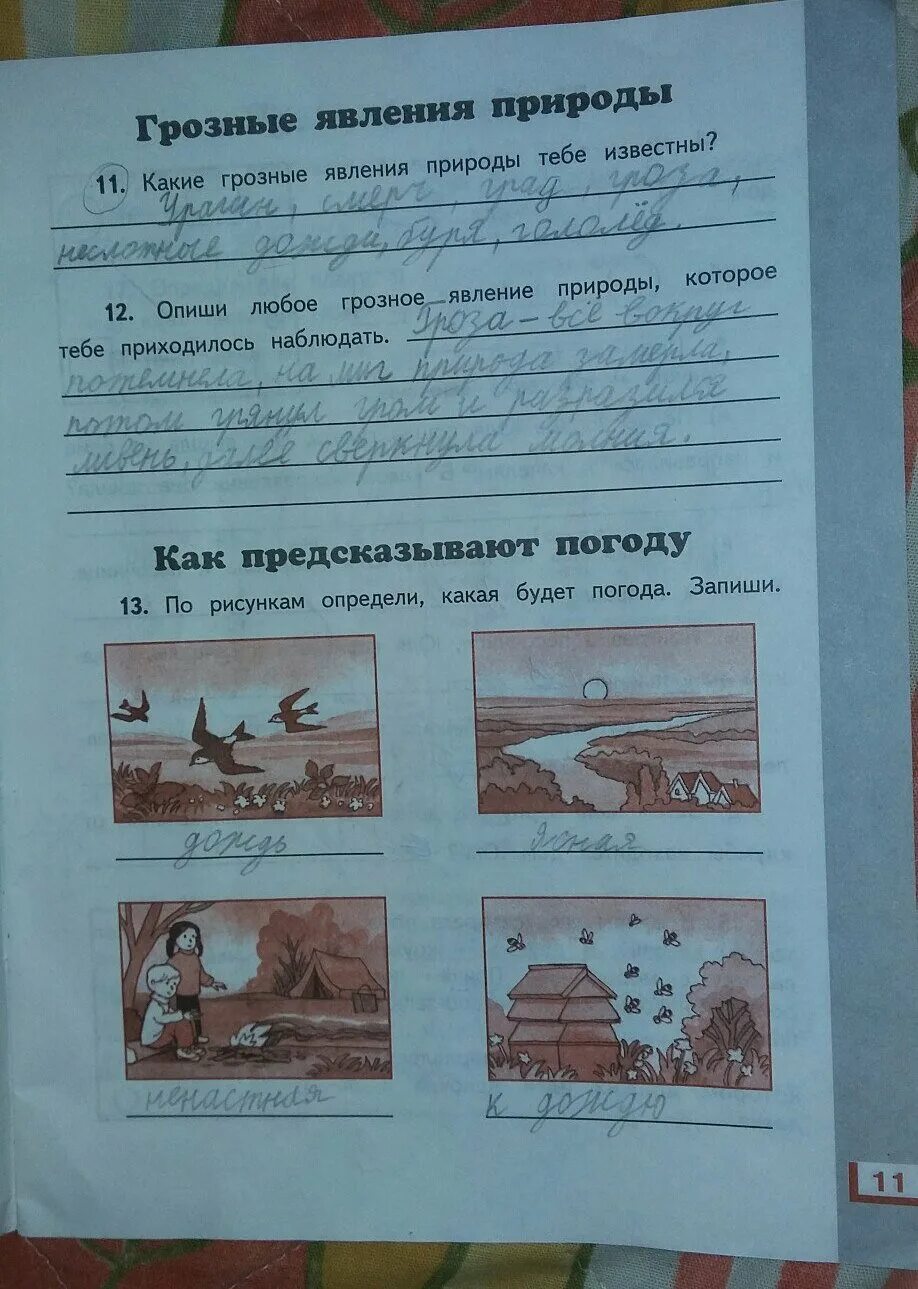 Грозные явления природы
11. Какие грозные явления природы тебе известны?
Ураган, смерч, град, гроза,
несложные дожди, буря, гололёд.
12. Опиши любое грозное явление природы, которое
тебе приходилось наблюдать. Гроза – всё вокруг
потемнела, на миг природа замерла,
потом грянул гром и разразился
ливень, сверкнула молния.
Как предсказывают погоду
13. По рисункам определи, какая будет погода. Запиши.
дождь
Ясная
ненастная
к дождю
11